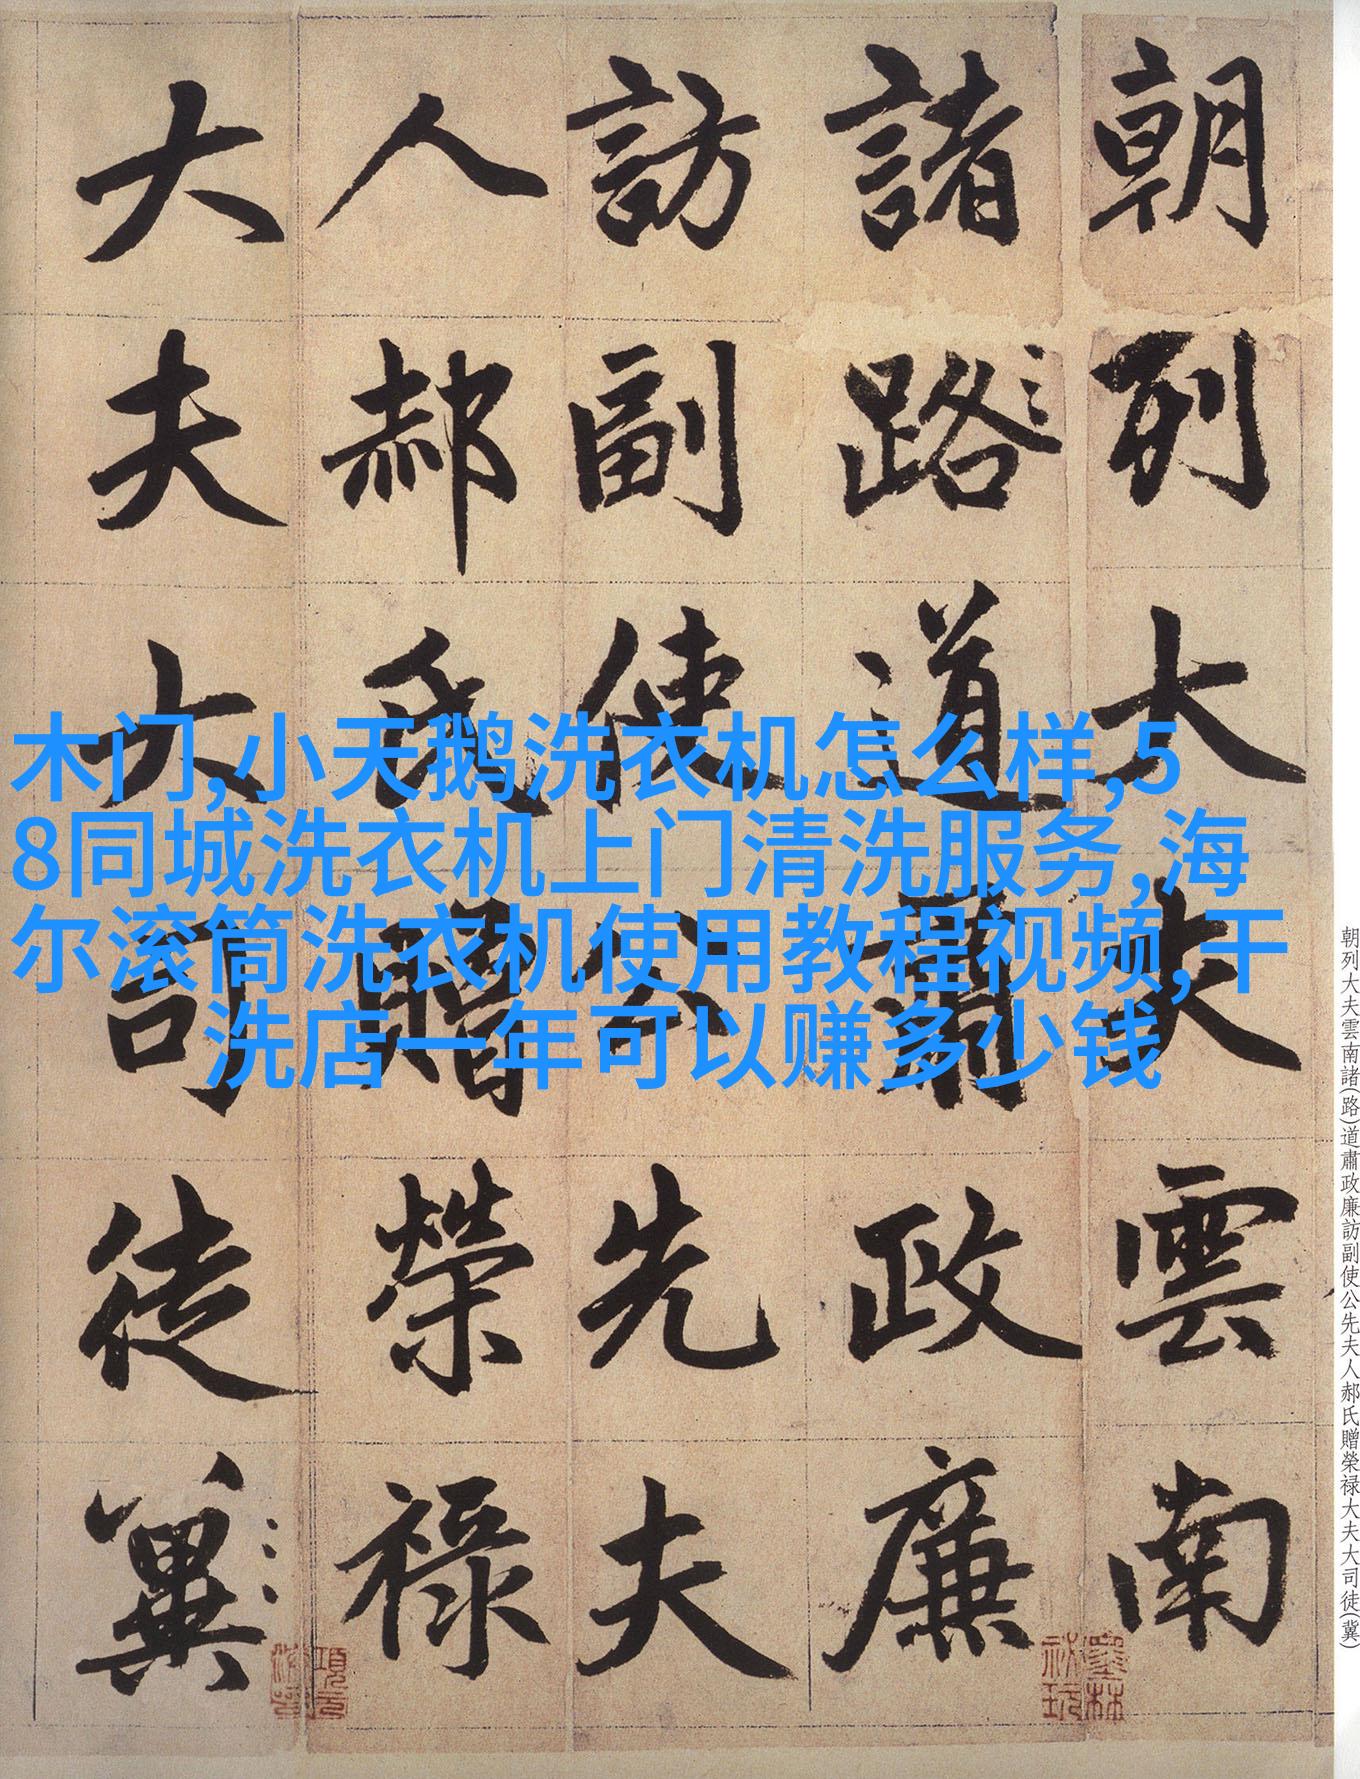 朝列大夫雲南
諸路道肅政廉
訪副使公先夫
人郝氏贈榮禄
大夫大司徒冀
木门,小天鹅洗衣机怎么样,5
8同城洗衣机上门清洗服务,海
尔滚筒洗衣机使用教程视频,干
洗店一年可以赚多少钱
朝列大夫雲南諸(路)道肅政廉訪副使公先夫人郝氏贈榮禄大夫大司徒(冀)